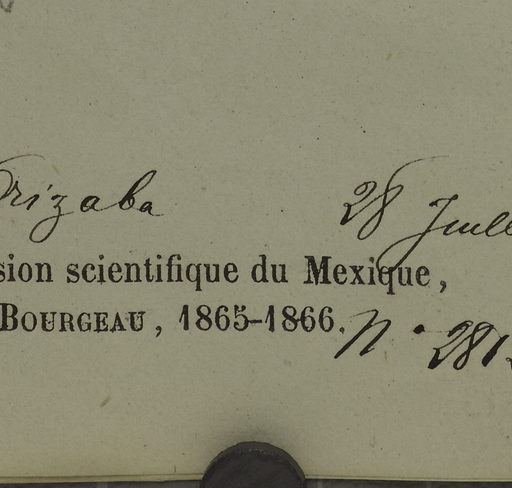 Orizaba 28 Juill
sion scientifique du Mexique,
BOURGEAU, 1865-1866. N° 281